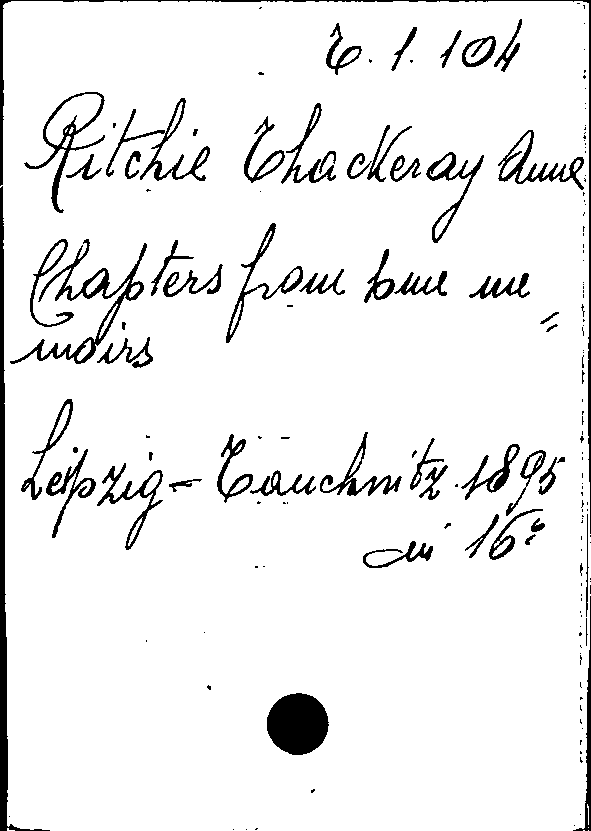 T. 1. 104
Ritchie Thackeray Anne
Chapters from some me=
moirs
Leipzig - Tauchnitz 1895
in 16°